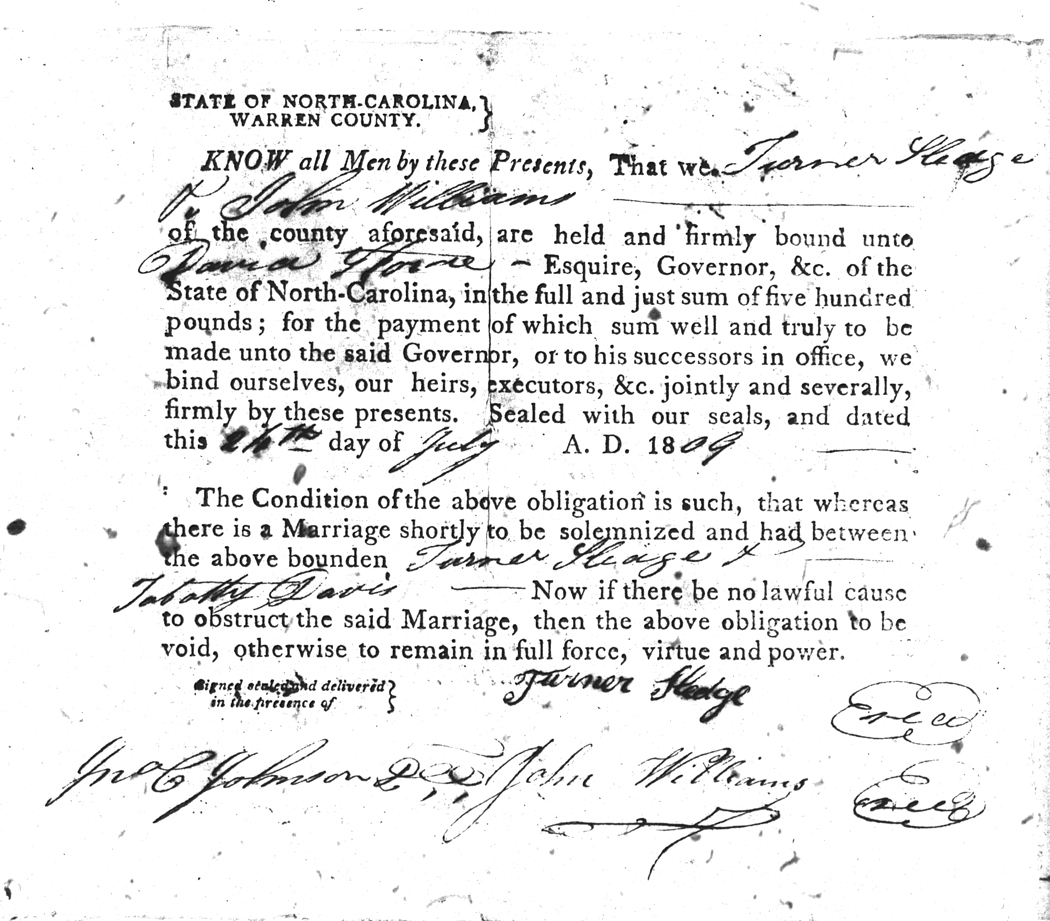 STATE OF NORTH-CAROLINA,
WARREN COUNTY.
KNOW all Men by these Presents, That we Turner Sledge
& John Williams
of the county aforesaid, are held and firmly bound unto
David Stone - Esquire, Governor, &c. of the
State of North-Carolina, in the full and just sum of five hundred
pounds; for the payment of which sum well and truly to be
made unto the said Governor, or to his successors in office, we
bind ourselves, our heirs, executors, &c. jointly and severally,
firmly by these presents. Sealed with our seals, and dated
this 24th day of July A. D. 1809
The Condition of the above obligation is such, that whereas
there is a Marriage shortly to be solemnized and had between
the above bounden Turner Sledge &
Tabathy Davis Now if there be no lawful cause
to obstruct the said Marriage, then the above obligation to be
void, otherwise to remain in full force, virtue and power.
Signed sealed and delivered
in the presence of
Turner Sledge
Jno C Johnson John Williams